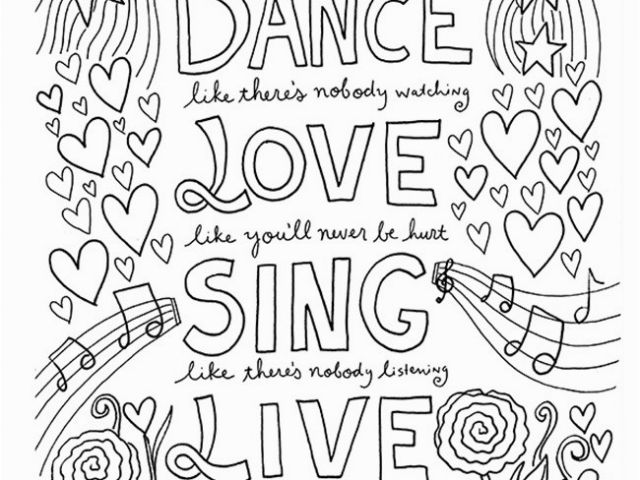 DANCE
like there's nobody watching
LOVE
like you'll never be hurt
SING
like there's nobody listening
LIVE